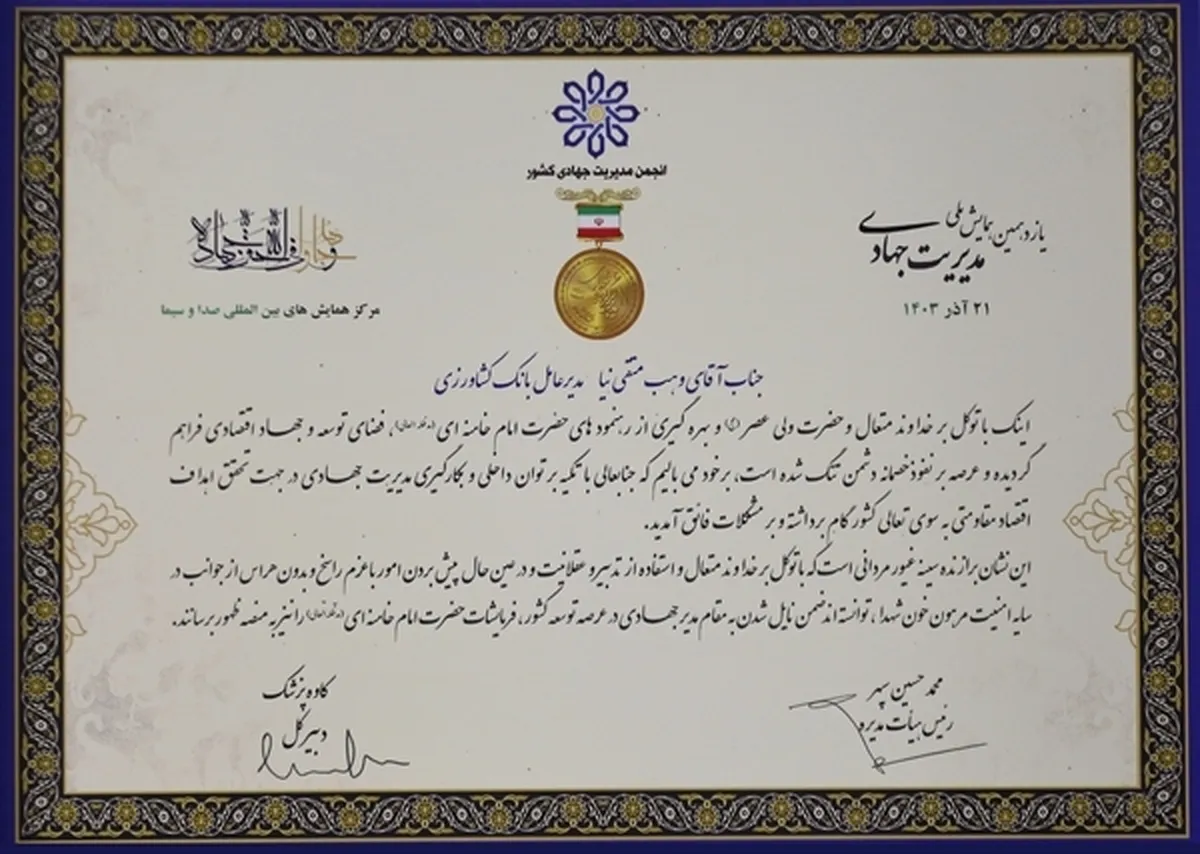 انجمن مدیریت جهادی کشور
یازدهمین همایش ملی
مدیریت جهادی
۲۱ آذر ۱۴۰۳
و جاهدوا فی الله حق جهاده
مرکز همایش های بین المللی صدا و سیما
جناب آقای وهب متقی نیا مدیرعامل بانک کشاورزی
اینک با توکل بر خداوند متعال و حضرت ولی عصر (عج) و بهره گیری از رهنمود های حضرت امام خامنه ای (مد ظله العالی)، فضای توسعه و جهاد اقتصادی فراهم
گردیده و عرصه بر نفوذ خصمانه دشمن تنگ شده است، برخود می بالیم که جنابعالی با تکیه بر توان داخلی و بکارگیری مدیریت جهادی در جهت تحقق اهداف
اقتصاد مقاومتی به سوی تعالی کشور گام برداشته و بر مشکلات فائق آمدید.
این نشان برازنده سینه غیور مردانی است که با توکل بر خداوند متعال و استفاده از تدبیر و عقلانیت و در عین حال پیش بردن امور با عزم راسخ و بدون هراس از جوانب در
سایه امنیت مرهون خون شهدا، توانسته اند ضمن نایل شدن به مقام مدیر جهادی در عرصه توسعه کشور، فرمایشات حضرت امام خامنه ای (مد ظله العالی) را نیز به منصه ظهور برسانند.
محمد حسین سپهر
رئیس هیأت مدیره
کاوه پزشک
دبیرکل